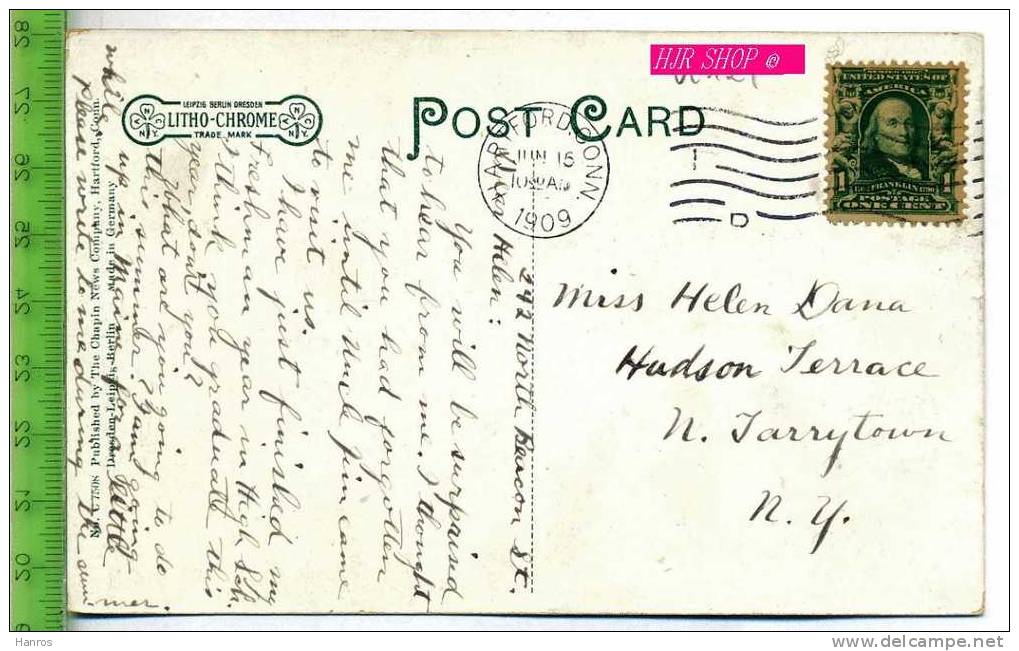 HJR SHOP ©
POST CARD
LEIPZIG BERLIN DRESDEN
LITHO-CHROME
TRADE MARK
N N Y
N N Y
HARTFORD, CONN.
JUN 15
1909
D
UNITED STATES OF
AMERICA
1 FRANKLIN 1
POSTAGE
ONE CENT
Miss Helen Dana
Hudson Terrace
N. Tarrytown
N. Y.
342 North Beacon St.
Dear Helen:
You will be surprised
to hear from me. I thought
that you had forgotten
me until Uncle Jim came
to visit us.
I have just finished my
freshman year in High Sch.
I think you graduate this
year, don't you?
What are you going to do
this summer? I am going
up in Maine for a little
while.
Please write to me during the summer.
No. C 7508 Published by The Chapin News Company, Hartford, Conn.
Dresden-Leipzik-Berlin Made in Germany
28
27
26
25
24
23
22
21
20
Hanros
www.delcampe.net